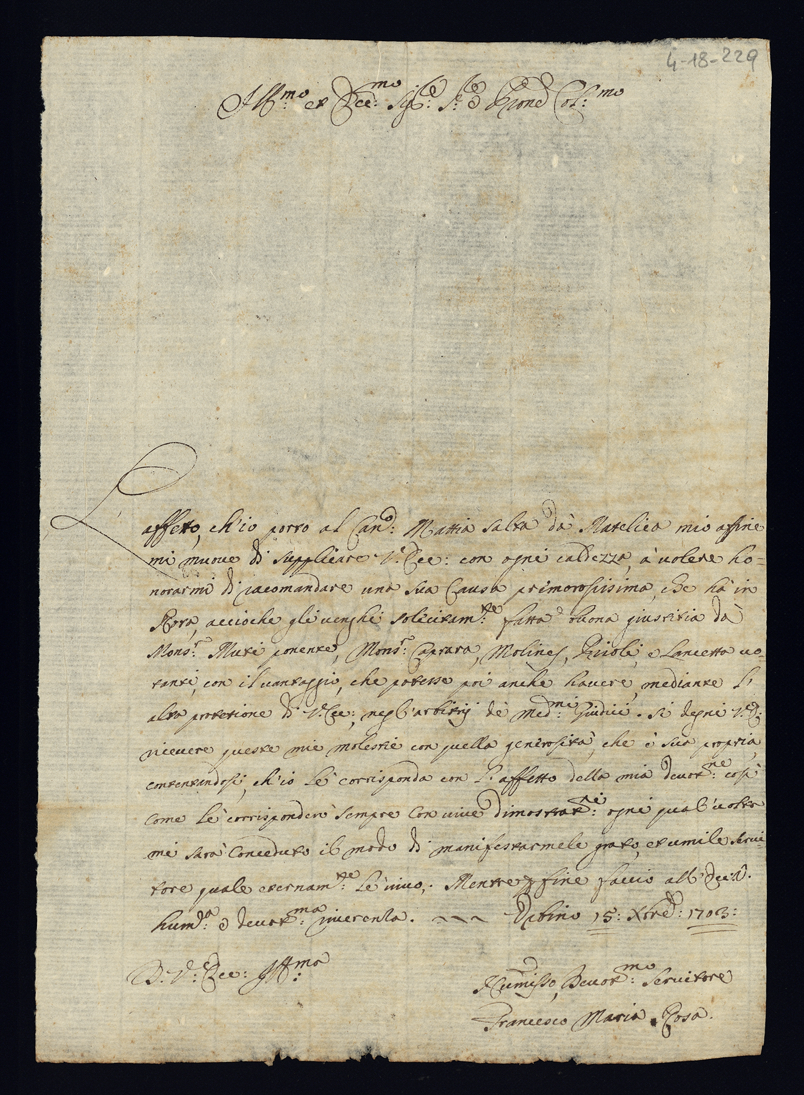 4-18-229
Ill:mo et Ecc:mo Sig:re S:re e Prone Col:mo
L'affetto, ch'io porto al Can:o Mattia Salta da Matelica mio affine
mi muove di supplicare V: Ecc: con ogni caldezza, à volere ho=
norarmi di racomandare una sua Causa premorosissima, che hà in
Rota, accioche gli venghi solicitam:te fatta buona giustitia da
Mons:r Muti ponente, Mons:r Caprara, Molines, Prioli, e Lancetta vo-
tanti, con il vantaggio, che potesse poi anche havere, mediante l'
alta protetione di V: Ecc:, negl'arbitrij de med:mi Giudici. Si degni V: E:
ricevere queste mie molestie con quella generosità, che è sua propria,
contentandosi, ch'io le corrisponda con l'affetto della mia devot:ne così
come le corrisponderò sempre con vive dimostrat:ni ogni qual'volta
mi sarà conceduto il modo di manifestarmele grato, et umile servi-
tore quale eternam:te le vivo; Mentre p fine faccio all' Ecc: V:
hum:a e devot:ma riverenza. Urbino 15: Xbre: 1703:
D: V: Ecc: Ill:ma
Humilisso, Devot:mo Servitore
Francesco Maria Rosa.